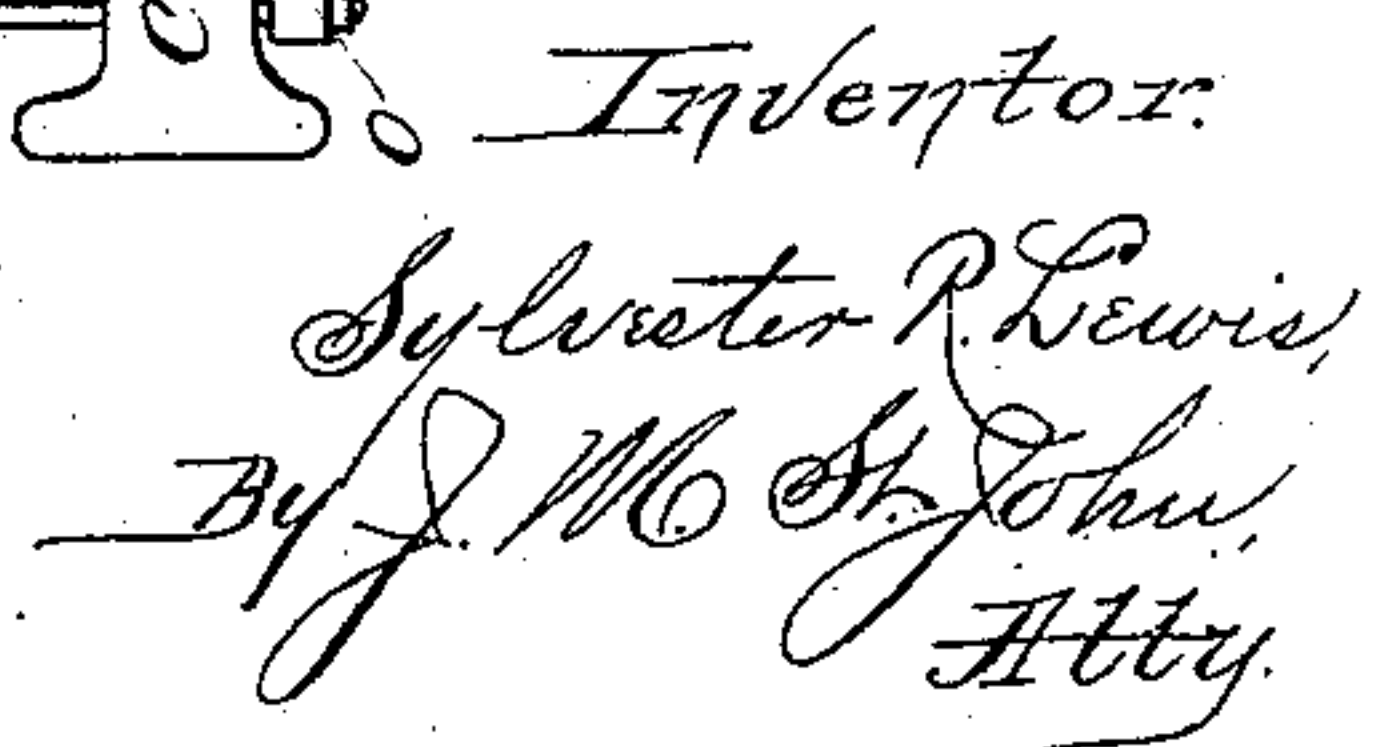 Inventor.
Sylvester R. Lewis,
By J. M. St. John,
Atty.